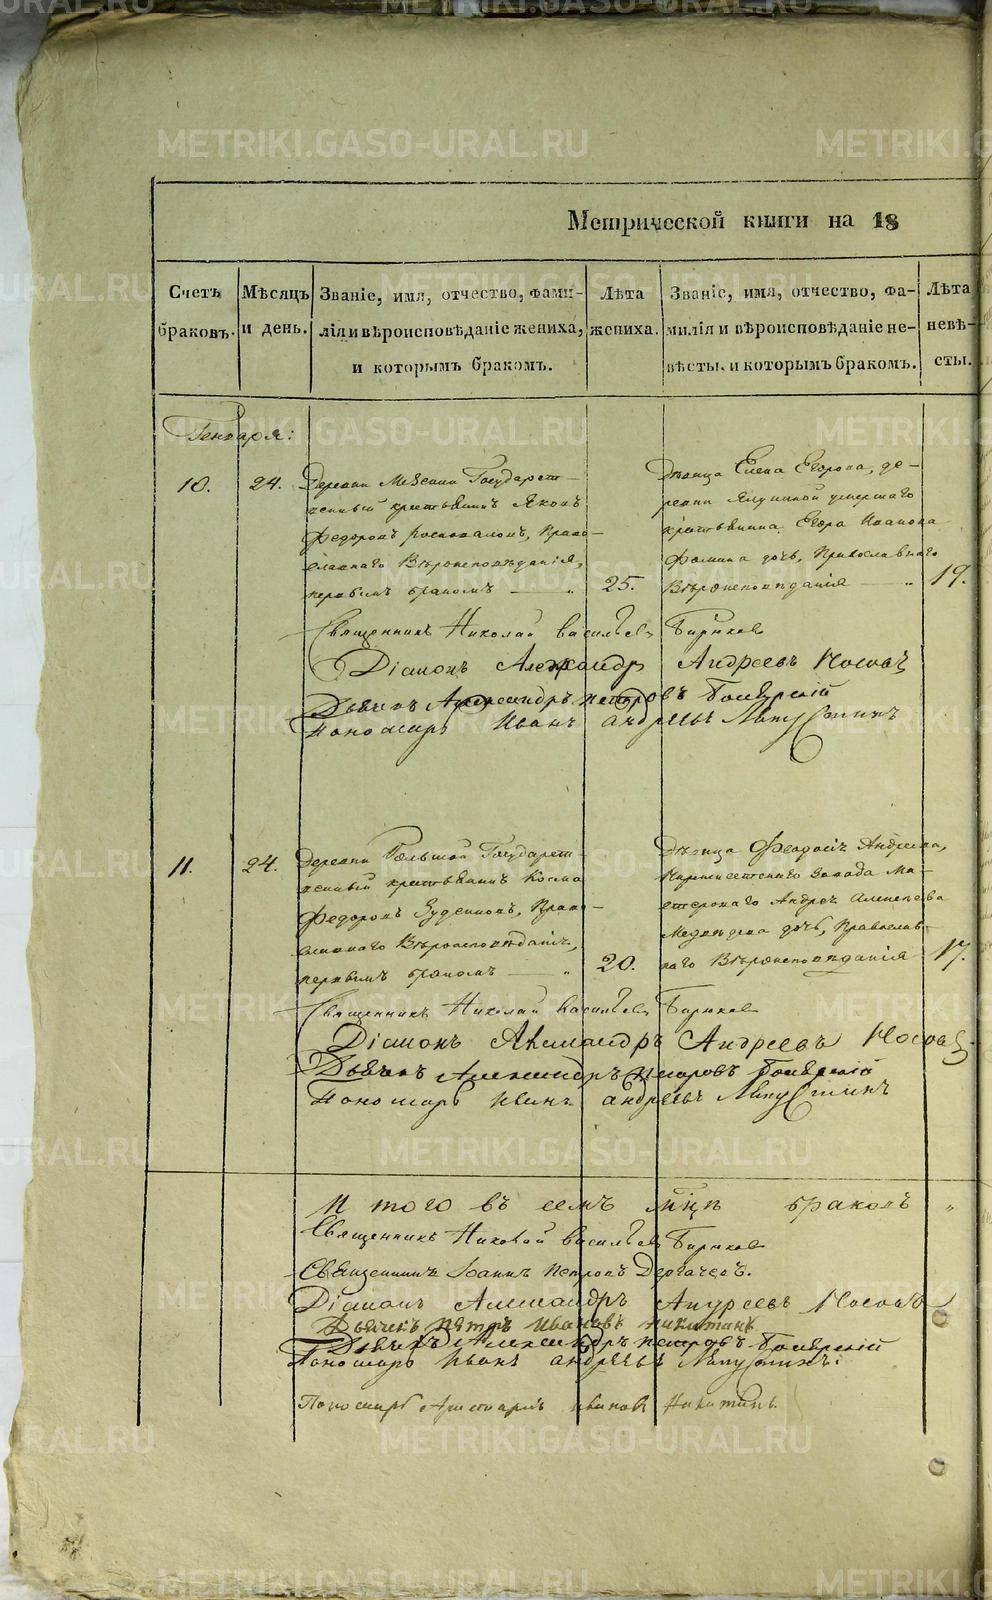 METRIKI.GASO-URAL.RU
Метрической книги на 18
Счетъ браковъ.
Мѣсяцъ и день.
Званіе, имя, отчество, фами-
лія и вѣроисповѣданіе жениха,
и которымъ бракомъ.
Лѣта жениха.
Званіе, имя, отчество, фа-
милія и вѣроисповѣданіе не-
вѣсты, и которымъ бракомъ.
Лѣта невѣ-
сты.
Генваря:
10.
24.
Деревни Государст-
венный крестьянинъ Яковъ
Федоровъ Право-
славнаго Вѣроисповѣданія,
первымъ бракомъ
25.
Дѣвица Елена Егорова, де-
ревни умершаго
крестьянина Егора Иванова
Фомина дочь, Православнаго
Вѣроисповѣданія
19.
Священникъ Николай Васильевъ Бирюковъ
Діаконъ Александръ Андреевъ Носовъ
Дьячекъ Александръ Петровъ
Пономарь Иванъ Андреевъ
11.
24.
Деревни Большой Государст-
венный крестьянинъ Косма
Федоровъ Право-
славнаго Вѣроисповѣданія,
первымъ бракомъ
20.
Дѣвица Андреева,
завода Ма-
стероваго Андрея Алексѣева
Медвѣдева дочь, Православ-
наго Вѣроисповѣданія
17.
Священникъ Николай Васильевъ Бирюковъ
Діаконъ Александръ Андреевъ Носовъ
Дьячекъ Александръ Петровъ
Пономарь Иванъ Андреевъ
И того въ семъ мцѣ браковъ
Священникъ Николай Васильевъ Бирюковъ
Священникъ Іоаннъ Петровъ Дергачевъ.
Діаконъ Александръ Андреевъ Носовъ
Дьячекъ Петръ Ивановъ Никитинъ
Дьячекъ Александръ Петровъ
Пономарь Иванъ Андреевъ
Пономарь Ивановъ Никитинъ.